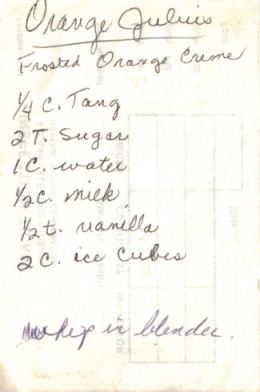 Orange Julius
Frosted Orange Creme
1/4 C. Tang
2 T. Sugar
1 C. water
1/2 C. milk
1/2 t. vanilla
2 C. ice cubes
in blender.